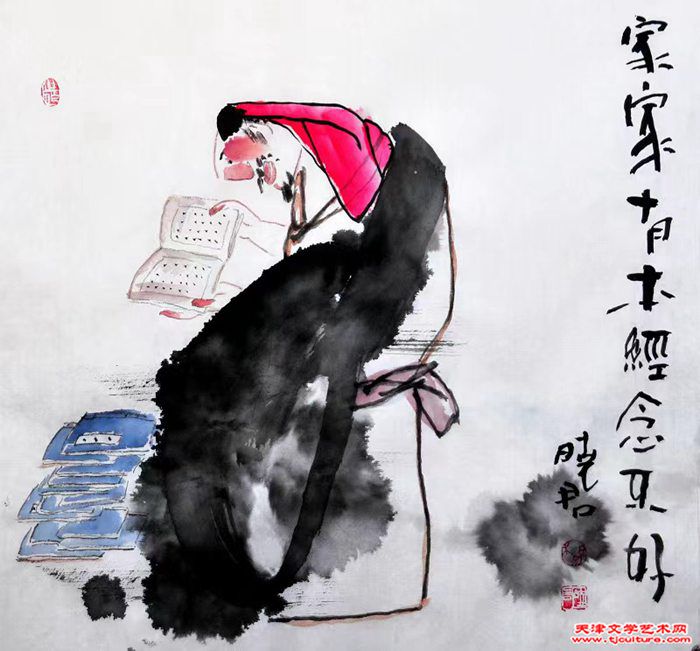 家家有本經念不好
晓君
天津文学艺术网
www.tjculture.com